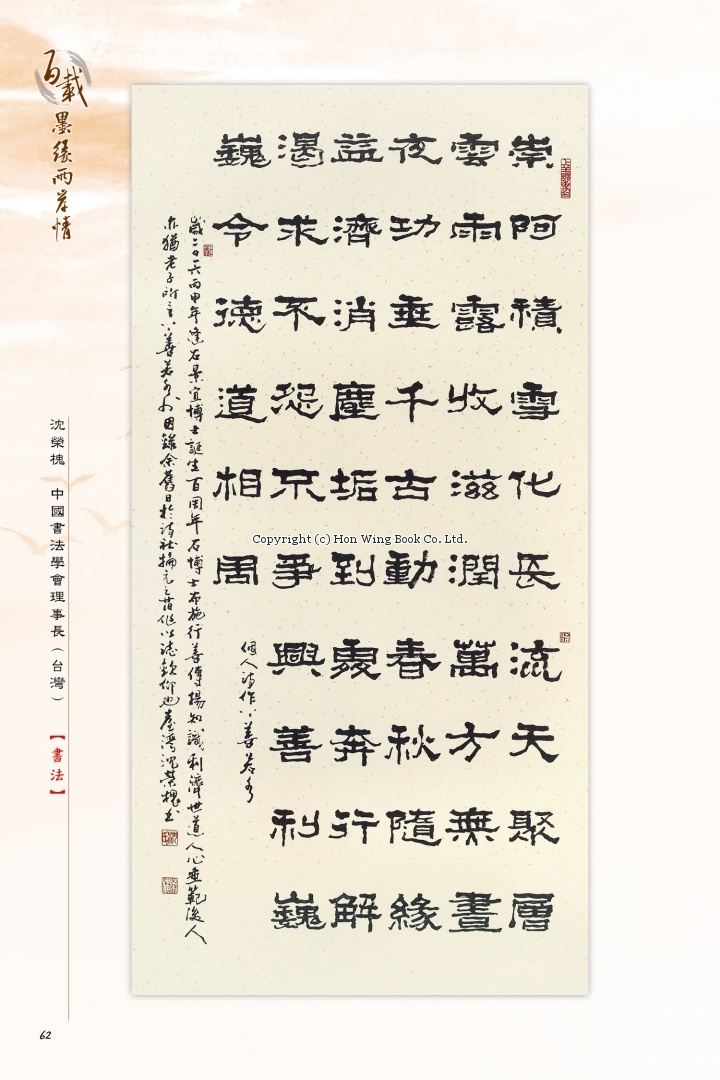 百載
墨緣兩岸情
沈榮槐 中國書法學會理事長（台灣）
【書法】
崇阿積雪化長流天聚層
雲雨露收滋潤萬方無晝
夜功垂千古動春秋隨緣
益濟消塵垢到處奔行解
渴求不怨不爭興善利巍
巍令德道相周
個人詩作八善若水
歲二〇一六丙申年逢石景宜博士誕生百周年石博士布施行善傳揚知識利濟世道人心垂範後人
亦猶老子所言八善若水於因錄余舊日於詩社掄元之昔作以誌欽仰也臺灣沈榮槐書
Copyright (c) Hon Wing Book Co. Ltd.
62